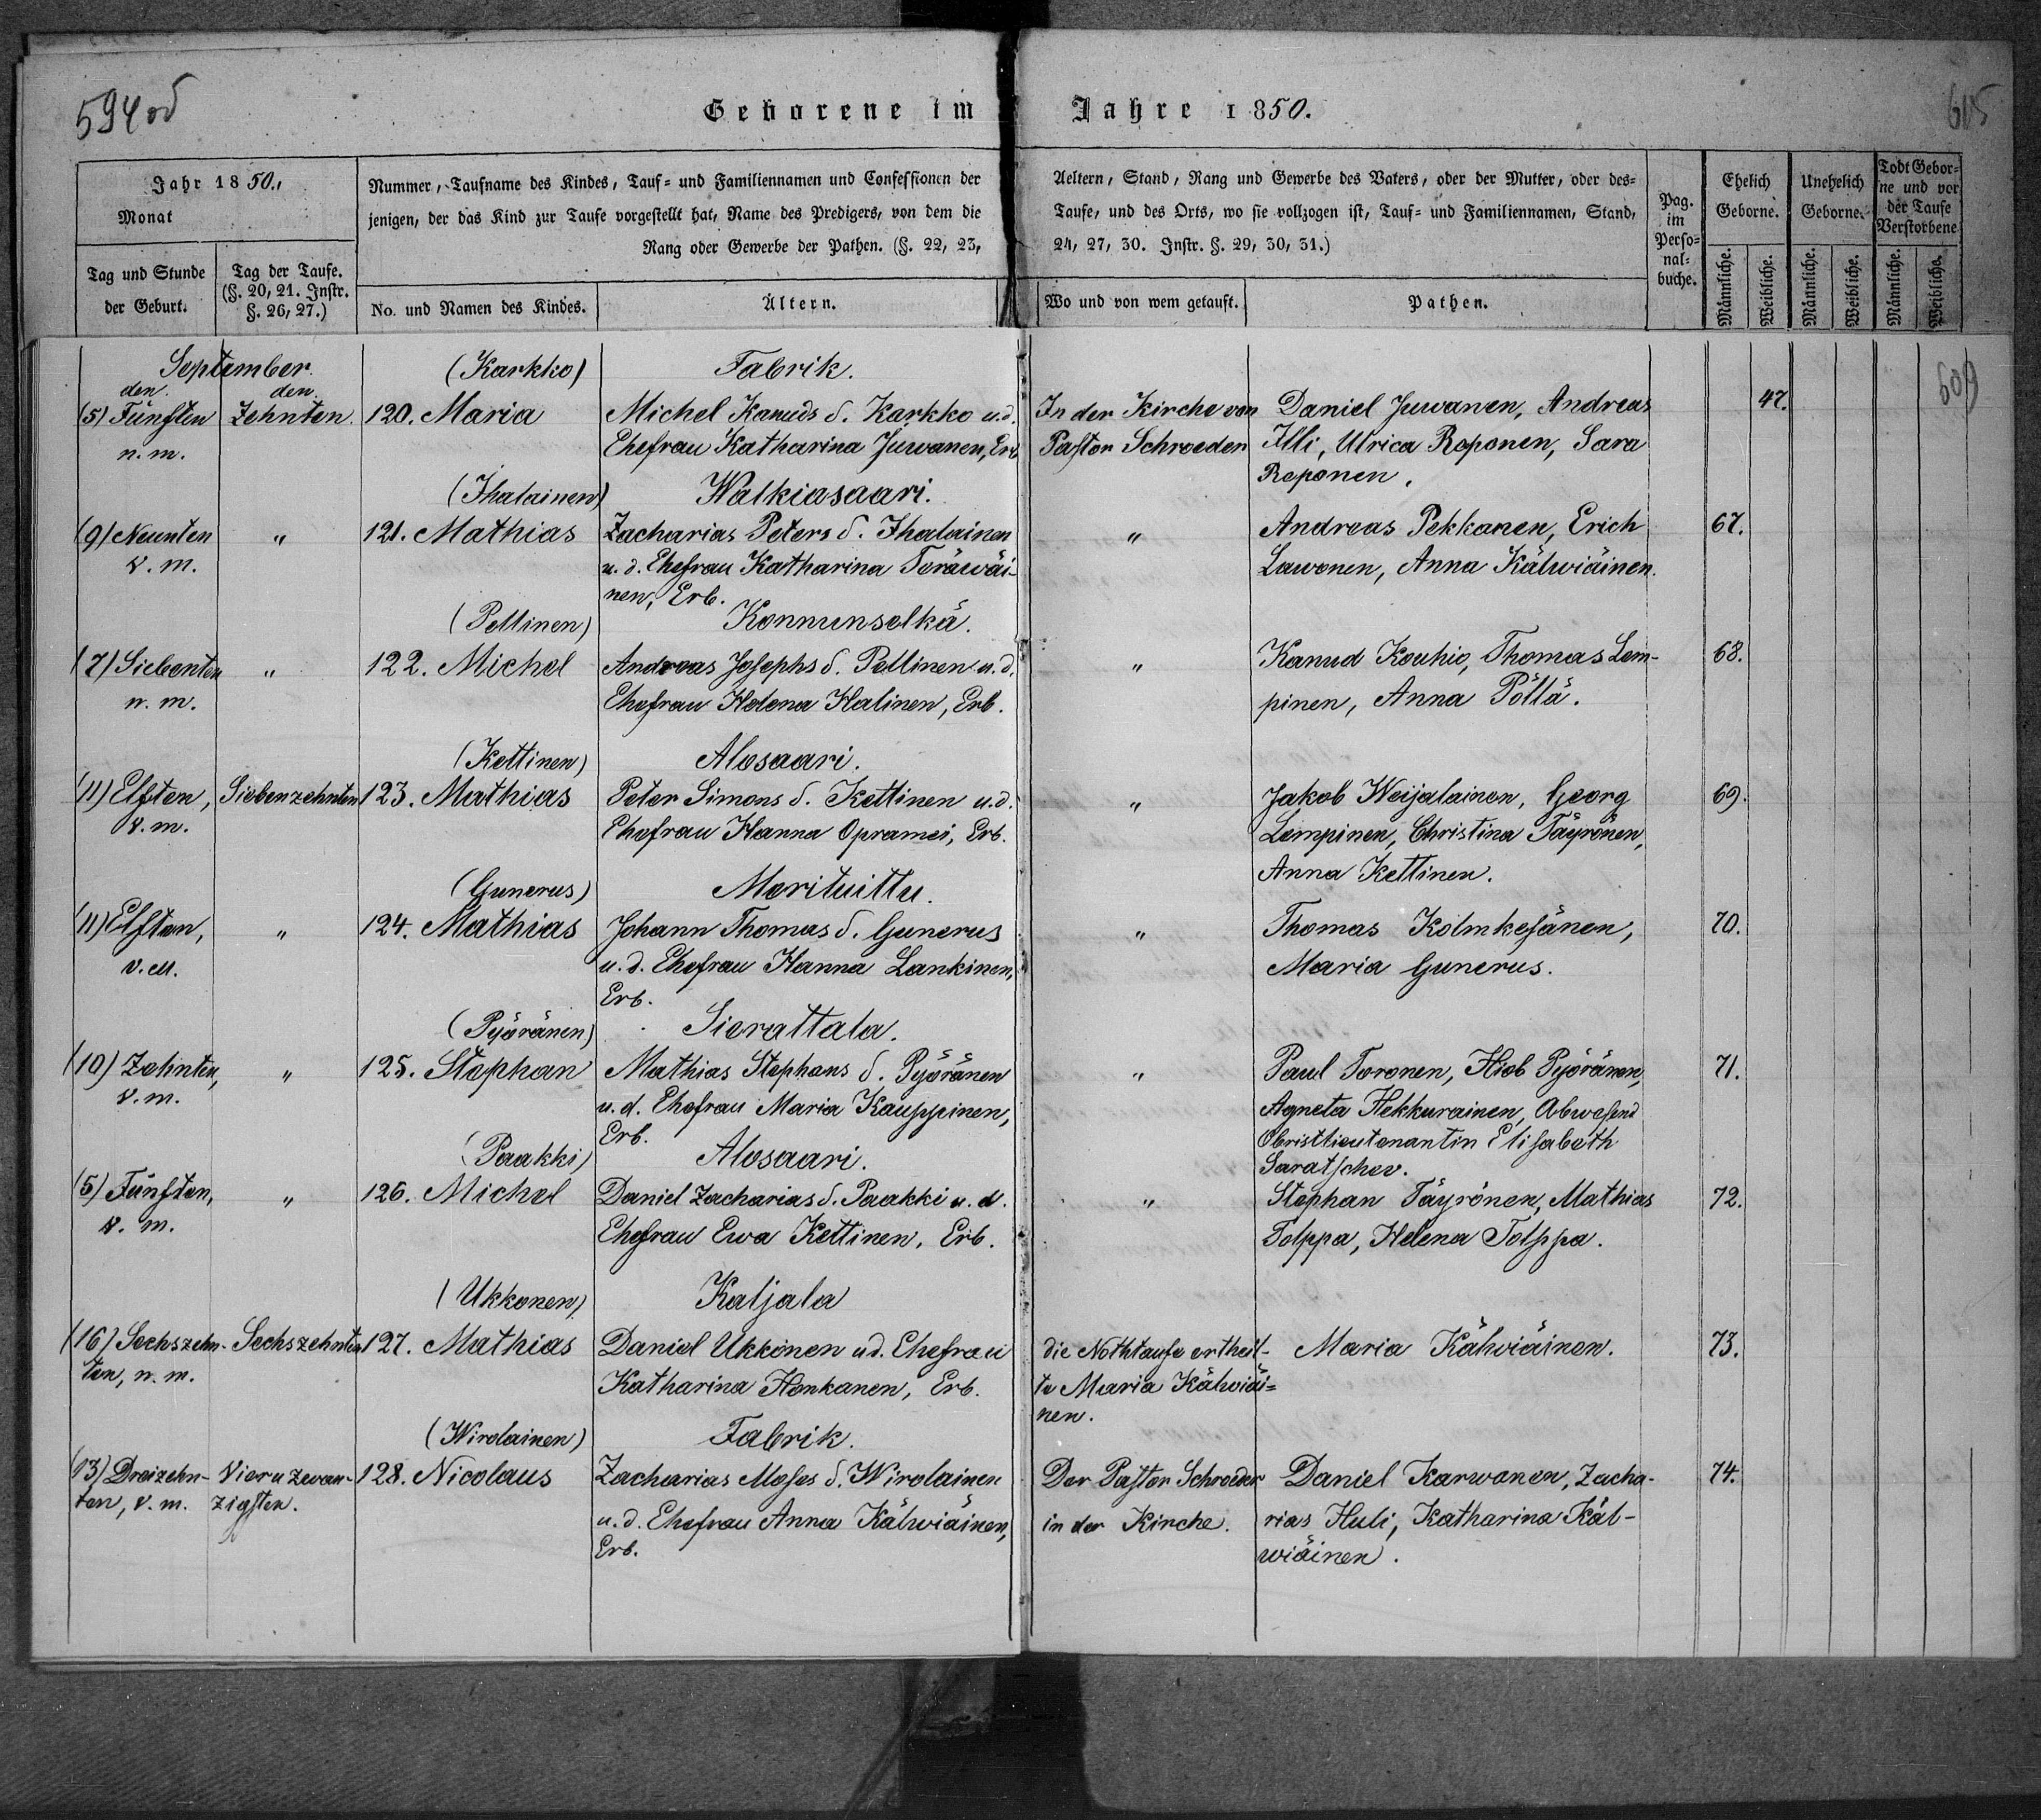 594 od
Geborene im Jahre 1850.
615
Jahr 1850.,
Monat
Tag und Stunde der Geburt.
Tag der Taufe. (§. 20, 21. Instr. §. 26, 27.)
Nummer, Taufname des Kindes, Tauf- und Familiennamen und Confessionen der Aeltern, Stand, Rang und Gewerbe des Vaters, oder der Mutter, oder des-
jenigen, der das Kind zur Taufe vorgestellt hat, Name des Predigers, von dem die Taufe, und des Orts, wo sie vollzogen ist, Tauf- und Familiennamen, Stand,
Rang oder Gewerbe der Pathen. (§. 22, 23, 24, 27, 30. Instr. §. 29, 30, 31.)
No. und Namen des Kindes.
Ältern.
Wo und von wem getauft.
Pathen.
Pag. im Perso=nal=buche.
Ehelich Geborne.
Unehelich Geborne.
Todt Gebor=ne und vor der Taufe Verstorbene
Männliche. Weibliche. Männliche. Weibliche. Männliche. Weibliche.
609
September. (Karkko) Fabrik.
den. den.
(5) Fünften Zehnten. 120. Maria Michel Kanuds S. Karkko u.d. In der Kirche von Daniel Juwanen, Andreas 47.
n. m. Ehefrau Katharina Juwanen, Erb Pastor Schroeder Illi, Ulrica Roponen, Sara
Roponen.
(Ihalainen) Walkiasaari.
(9) Neunten " 121. Mathias Zacharias Peters S. Ihalainen " Andreas Pekkanen, Erich 67.
v. m. u. d. Ehefrau Katharina Toräwäi- Lawonen, Anna Kälwiäinen.
nen, Erb.
(Pellinen) Konnunselkä.
(7) Siebenten " 122. Michel Andreas Josephs S. Pellinen u. d. " Kanud Kouhio, Thomas Lem- 68.
n. m. Ehefrau Helena Halinen, Erb. pinen, Anna Pöllä.
(Kettinen) Alosaari.
(11) Elften, Siebenzehnten 123. Mathias Peter Simons S. Kettinen u.d. " Jakob Weijalainen, Georg 69.
v. m. Ehefrau Hanna Opramei, Erb. Lempinen, Christina Täyrönen,
Anna Kettinen.
(Gunerus) Morituittu.
(11) Elften, " 124. Mathias Johann Thomas S. Gunerus " Thomas Kolmkesänen, 70.
v. M. u. d. Ehefrau Hanna Lankinen, Maria Gunerus.
Erb.
(Pyöränen) Sierattala.
(10) Zehnten, " 125. Stephan Mathias Stephans S. Pyöränen " Paul Toronen, Hiob Pyöränen, 71.
v. m. u. d. Ehefrau Maria Kauppinen, Agneta Hekkurainen, Abwesend
Erb. Obristlieutenantin Elisabeth
(Paakki) Alosaari. Saratschev.
(5) Fünften, " 126. Michel Daniel Zacharias S. Paakki u. d. " Stephan Täyrönen, Mathias 72.
v. m. Ehefrau Ewa Kettinen, Erb. Tolppa, Helena Tolppa.
(Ukkonen) Kaljala
(16) Sechszehn- Sechszehnten 127. Mathias Daniel Ukkonen u d. Ehefrau die Nothtaufe ertheil- Maria Kälwiäinen. 73.
ten, n. m. Katharina Honkanen, Erb. te Maria Kälwiäi=
nen.
(Wirolainen) Fabrik.
(13) Dreizehn- Vier u zwan- 128. Nicolaus Zacharias Moses S. Wirolainen Der Pastor Schroeder Daniel Karwonen, Zacha- 74.
ten, v. m. zigsten. u. d. Ehefrau Anna Kälwiäinen, in der Kirche. rias Huli, Katharina Käl-
Erb. wiäinen.